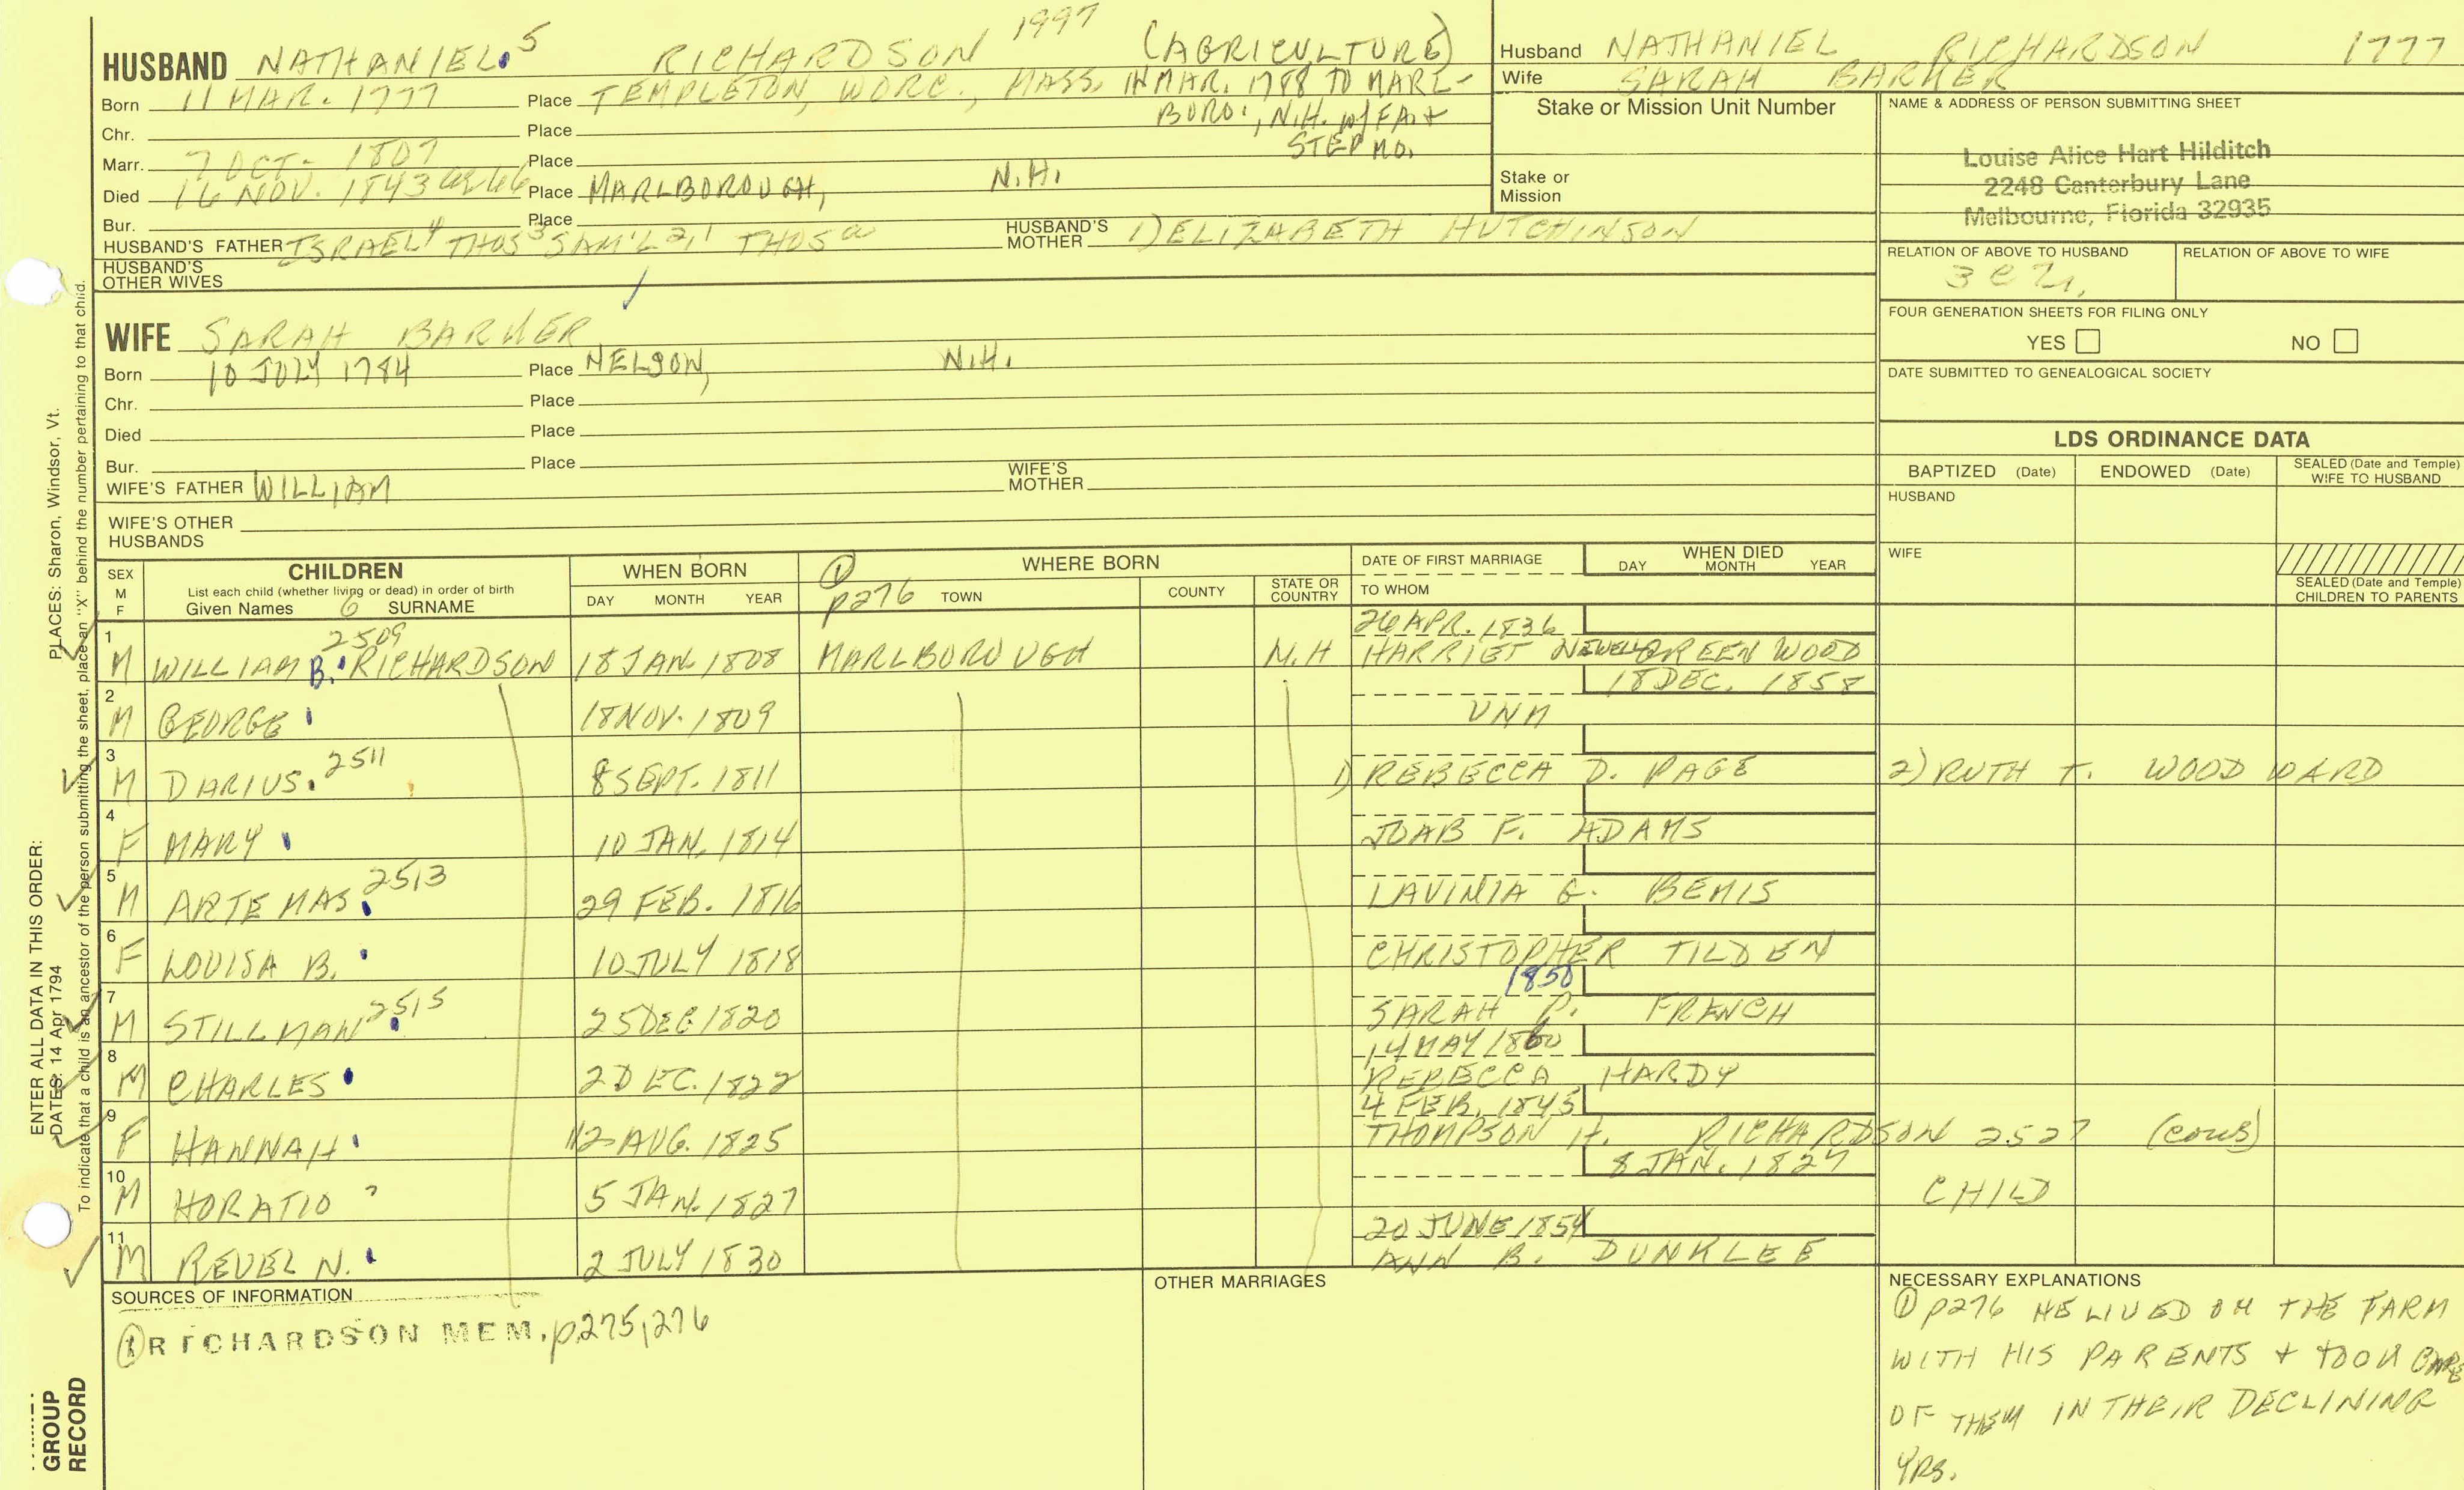 HUSBAND NATHANIEL 5 RICHARDSON 1997 (AGRICULTURE)
Born 11 MAR. 1777 Place TEMPLETON, WORC., MASS. IN MAR. 1788 TO MARL-
BORO., N.H. w/ FA. +
STEP MO.
Chr. Place
Marr. 7 OCT. 1807 Place
Died 16 NOV. 1843 ae 66 Place MARLBOROUGH, N.H.
Bur. Place
HUSBAND'S FATHER ISRAEL 4 THOS 3 SAM'L 2,1 THOS a HUSBAND'S MOTHER 1) ELIZABETH HUTCHINSON
HUSBAND'S OTHER WIVES
WIFE SARAH BARKER
Born 10 JULY 1784 Place NELSON, N.H.
Chr. Place
Died Place
Bur. Place
WIFE'S FATHER WILLIAM WIFE'S MOTHER
WIFE'S OTHER HUSBANDS
Husband NATHANIEL RICHARDSON 1777
Wife SARAH BARKER
Stake or Mission Unit Number
Stake or Mission
NAME & ADDRESS OF PERSON SUBMITTING SHEET
Louise Alice Hart Hilditch
2248 Canterbury Lane
Melbourne, Florida 32935
RELATION OF ABOVE TO HUSBAND RELATION OF ABOVE TO WIFE
FOUR GENERATION SHEETS FOR FILING ONLY
YES NO
DATE SUBMITTED TO GENEALOGICAL SOCIETY
LDS ORDINANCE DATA
BAPTIZED (Date) ENDOWED (Date) SEALED (Date and Temple) WIFE TO HUSBAND
HUSBAND
WIFE
SEALED (Date and Temple) CHILDREN TO PARENTS
SEX M F CHILDREN WHEN BORN ① WHERE BORN DATE OF FIRST MARRIAGE WHEN DIED
List each child (whether living or dead) in order of birth
Given Names 6 SURNAME DAY MONTH YEAR p276 TOWN COUNTY STATE OR COUNTRY TO WHOM DAY MONTH YEAR
1 2509 26 APR. 1836
M WILLIAM B. RICHARDSON 18 JAN. 1808 MARLBOROUGH N.H HARRIET NEWELL GREENWOOD
2 18 DEC. 1858
M GEORGE 18 NOV. 1809 UNM
3 2511
M DARIUS. 8 SEPT. 1811 1) REBECCA D. PAGE 2) RUTH T. WOODWARD
4
F MARY 10 JAN. 1814 JOAB F. ADAMS
5 2513
M ARTEMAS 29 FEB. 1816 LAVINIA G. BEMIS
6
F LOUISA B. 10 JULY 1818 CHRISTOPHER TILDEN
7 2515 1850
M STILLMAN 25 DEC 1820 SARAH P. FRENCH
8 14 MAY 1860
M CHARLES 2 DEC. 1822 REBECCA HARDY
9 4 FEB. 1845
F HANNAH 12 AUG. 1825 THOMPSON H. RICHARDSON 2527 (cous)
10 8 JAN. 1827
M HORATIO 5 JAN. 1827 CHILD
11 20 JUNE 1854
M REVEL N. 2 JULY 1830 ANN B. DUNKLEE
SOURCES OF INFORMATION
① RICHARDSON MEM. p.275,276
OTHER MARRIAGES
NECESSARY EXPLANATIONS
① p276 HE LIVED ON THE FARM
WITH HIS PARENTS + TOOK CARE
OF THEM IN THEIR DECLINING
YRS.
ENTER ALL DATA IN THIS ORDER:
PLACES: Sharon, Windsor, Vt.
DATES: 14 Apr 1794
To indicate that a child is an ancestor of the person submitting the sheet, place an "X" behind the number pertaining to that child.
GROUP
RECORD